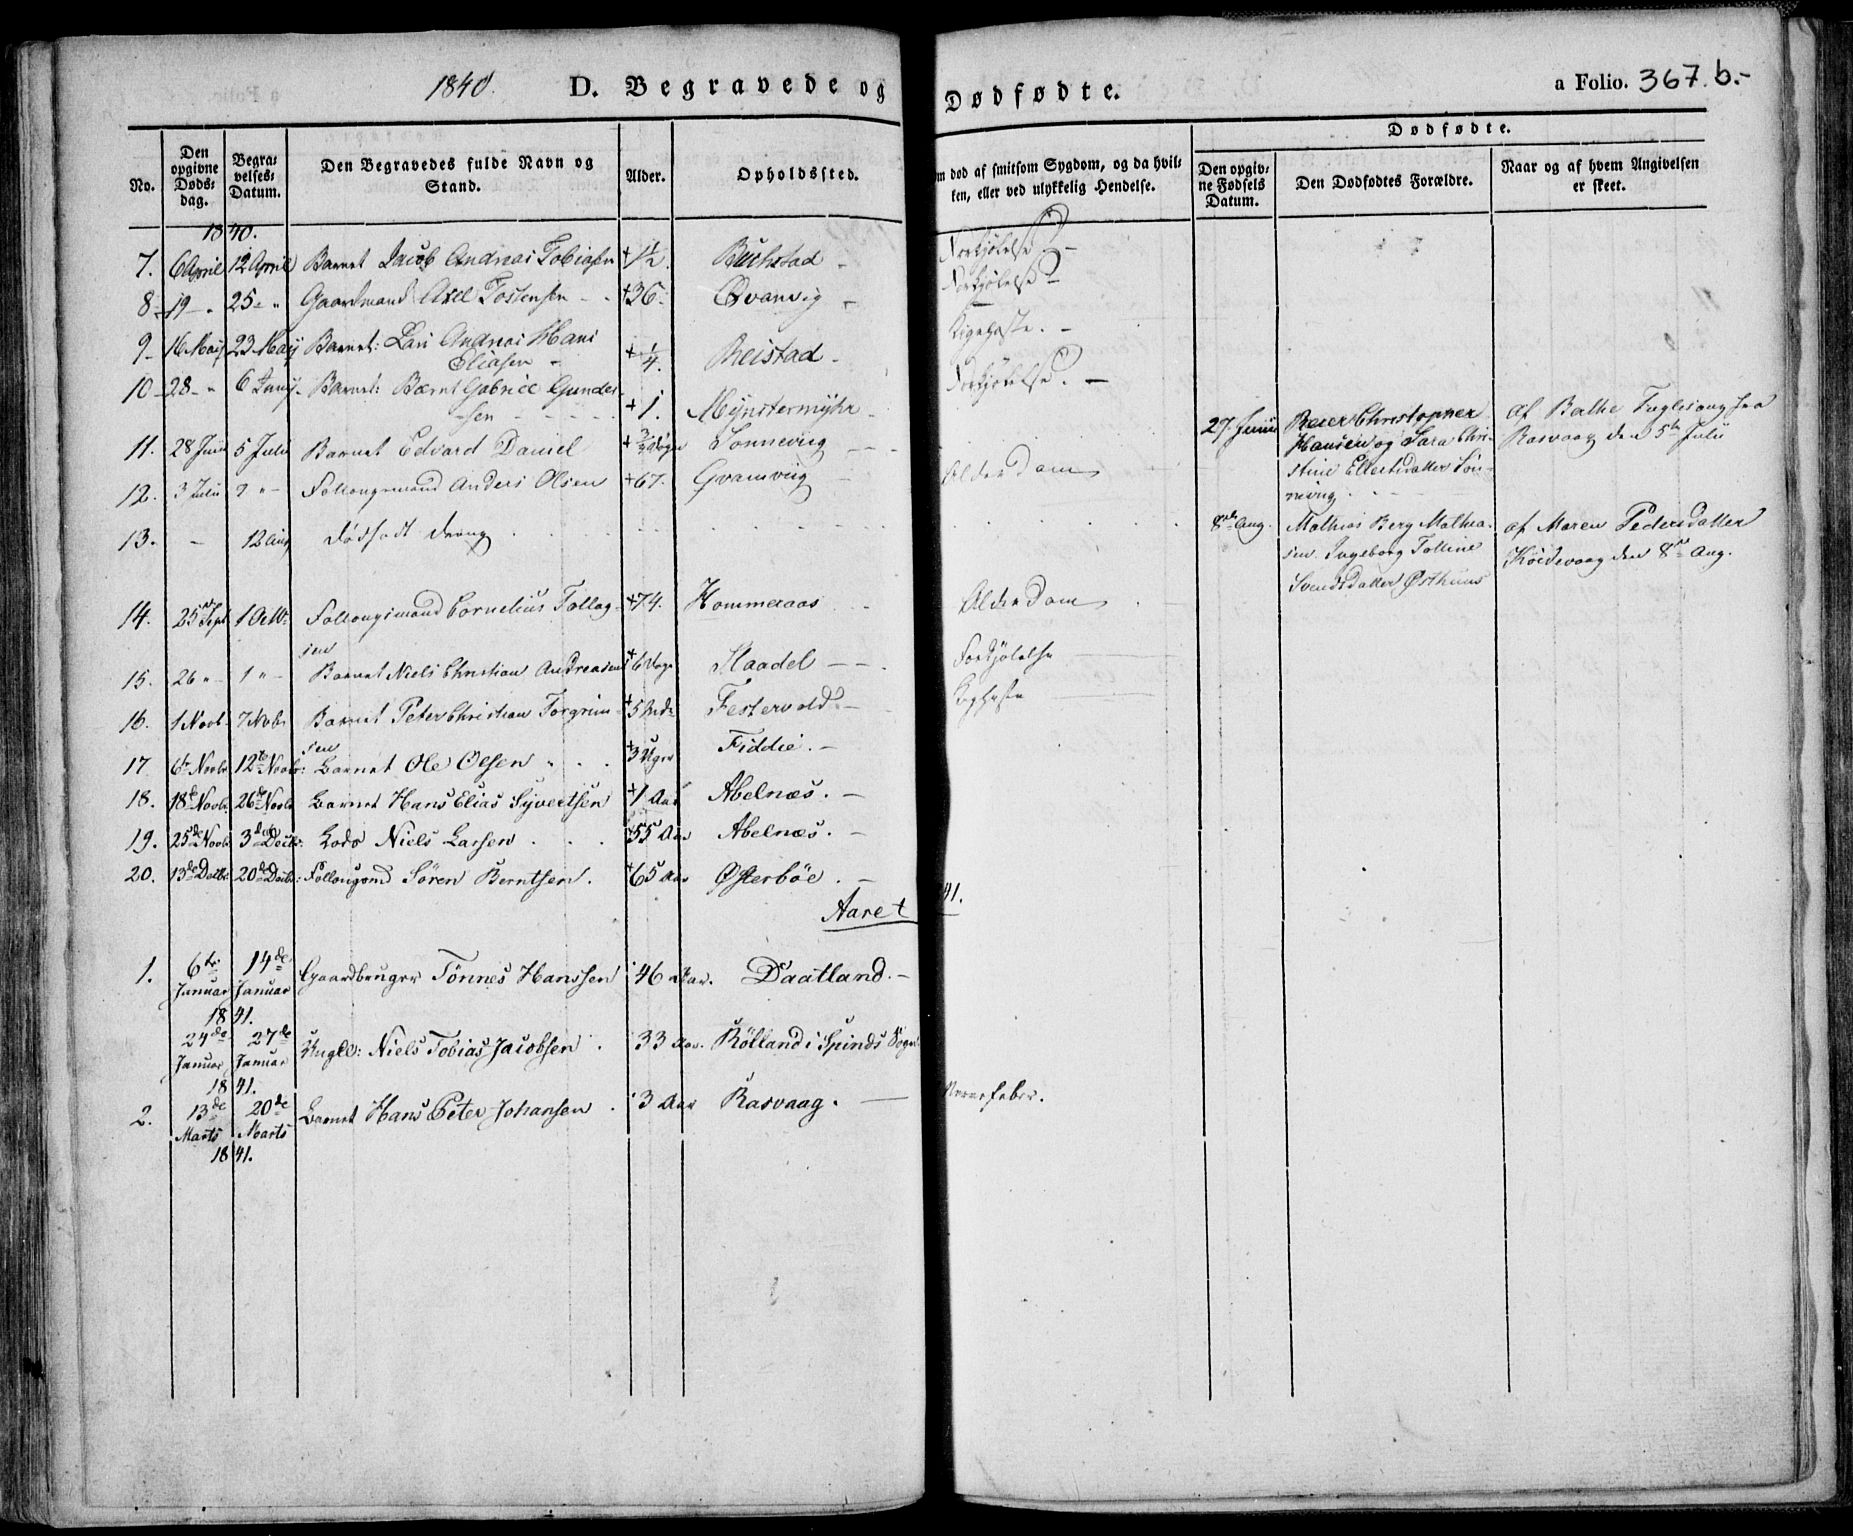 1840. D. Begravede og Dødfødte. a Folio. 367.b.-
No.
Den opgivne Døds-dag.
Begra-velses-Datum.
Den Begravedes fulde Navn og Stand.
Alder.
Opholdssted.
død af smitsom Sygdom, og da hvil-
ken, eller ved ulykkelig Hendelse.
Dødfødte.
Den opgiv-ne Fødsels Datum.
Den Dødfødtes Forældre.
Naar og af hvem Angivelsen er skeet.
1840.
7. 6 April 12 April Barnet Jacob Andreas Tobiasen +1½ Buchstad - Forkjølelse -
8 - 19 - " 25 - " Gaardmand Axel Tostensen - +36. Qvanvig - Forkjølelse -
9 - 16 May 23 May Barnet: Lars Andreas Hans
Eliasen - +¼. Reistad - Kighoste. -
10 - 28 - " 6 Juny - Barnet: Bærnt Gabriel Gunder-
-sen +1. Mynstermyhr - Forkjølelse. -
11. 28 Juni 5 Juli Barnet Edvard Daniel Sonnevig
27 Junii
Christopher
Hansen og Sara Chri-
stine Ellertsdatter Son-
nevig.
af Bathe Fuglesang fra
Rasvaag den 5te Julii
12. 3 Julii 9 " - Follougsmand Anders Olsen +67. Gvamvig - Alderdom
13. - 12 Aug Dødfødt dreng
8de Aug. Mathias Berg Mathia-
sen. Ingeborg Tolline
Svendsdatter Østhuus
af Maren Pedersdatter
Kordevaag den 8de Aug.
14. 25 Sept 1 Octb. Follougsmand Cornelius Tollag-
sen +74. Hommeraas Alderdom
15. 26 " - 1 " - Barnet Niels Christian Andreasen +6 Dage Staadel - - Forkjølelse
16. 1 Novb. 7 Novb Barnet Peter Christian Torgrim-
sen +5 Festervold - Kighoste
17 6te Novbr 12te Novbr: Barnet Ole Olsen " +3 Uger Fiddie. -
18. 18de Novbr. 26de Novbr Barnet Hans Elias Syvertsen +1 Aar Abelnæs. -
19. 25de Novbr. 3de Decbr: Lods Niels Larsen +55 Aar Abelnæs. -
20. 13de Decbr: 20de Decbr: Follougsmd Sören Berntsen. +65 Aar Østerböe. -
Aaret 41.
1. 6te Januar 14de Januar 1841. Gaardbruger Tönnes Hanssen 46 Aar. Daatland. -
24de Januar 27de Januar 1841. Ungk: Niels Tobias Jacobsen 33 Aar. Rölland i Spinds Sogn
2. 13de Marts 20de Marts 1841. Barnet Hans Peter Johansen 3 Aar Rasvaag. - Nervefeber.